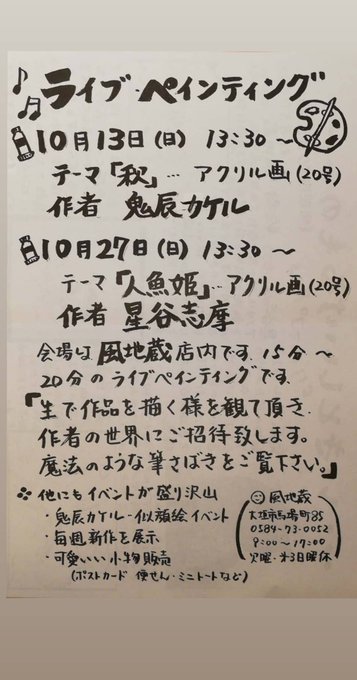 ライブ・ペインティング
10月13日(日) 13:30～
テーマ「秋」… アクリル画(20号)
作者 鬼辰カケル
10月27日(日) 13:30～
テーマ「人魚姫」… アクリル画(20号)
作者 星谷志摩
会場は 風地蔵 店内です. 15分～
20分のライブペインティングです.
「生で作品を描く様を観て頂き.
作者の世界にご招待致します。
魔法のような筆さばきをご覧下さい。」
他にもイベントが盛り沢山
・鬼辰カケル-似顔絵イベント
・毎週新作を展示
・可愛いい小物販売
(ポストカード 便せん・ミニトートなど)
風地蔵
大垣市馬場町85
0584-73-0052
9:00～17:00
火曜・第3日曜休